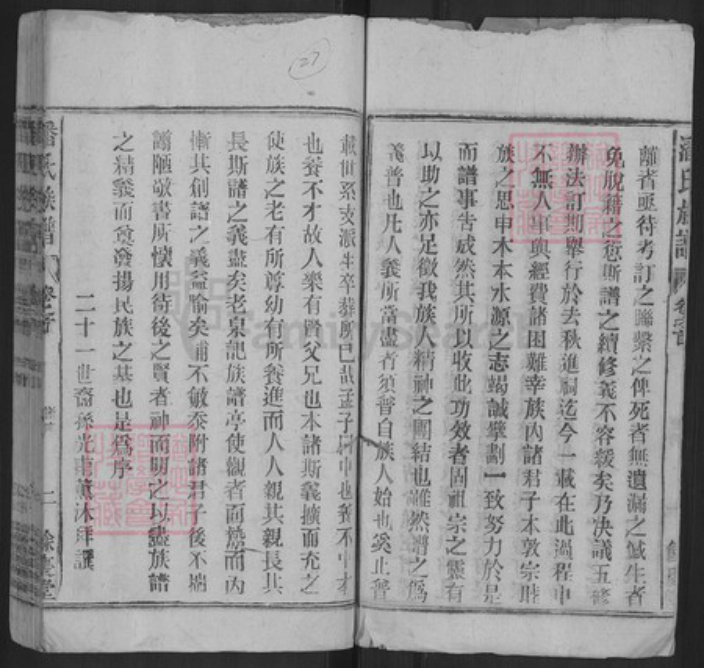 離者亟待考訂之聯繫之俾死者無遺漏之憾生者
免脫籍之愆斯譜之續修義不容緩矣乃決議五修
辦法訂期舉行於去秋進祠迄今一載在此過程中
不無人事與經費諸困難幸族內諸君子本敦宗睦
族之思申木本水源之志竭誠擘劃一致努力於是
而譜事告成然其所以收此功效者固祖宗之靈有
以助之亦足徵我族人精神之團結也雖然譜之為
義普也凡人義所當盡者須普自族人始也奚止普
載世系支派生卒葬所已哉孟子曰中也養不中才
也養不才故人樂有賢父兄也本諸斯義擴而充之
使族之老有所尊幼有所養進而人人親其親長其
長斯譜之義盡矣老泉記族譜亭使觀者而愧而內
慚其創譜之義益喻矣補不敏忝附諸君子後不揣
譾陋敬書所懷用待後之賢者神而明之以盡族譜
之精義而奠發揚民族之基也是為序
二十一世裔孫光 薰沐拜譔
潘氏族譜 卷之首
潘氏族譜 卷之首 二
27